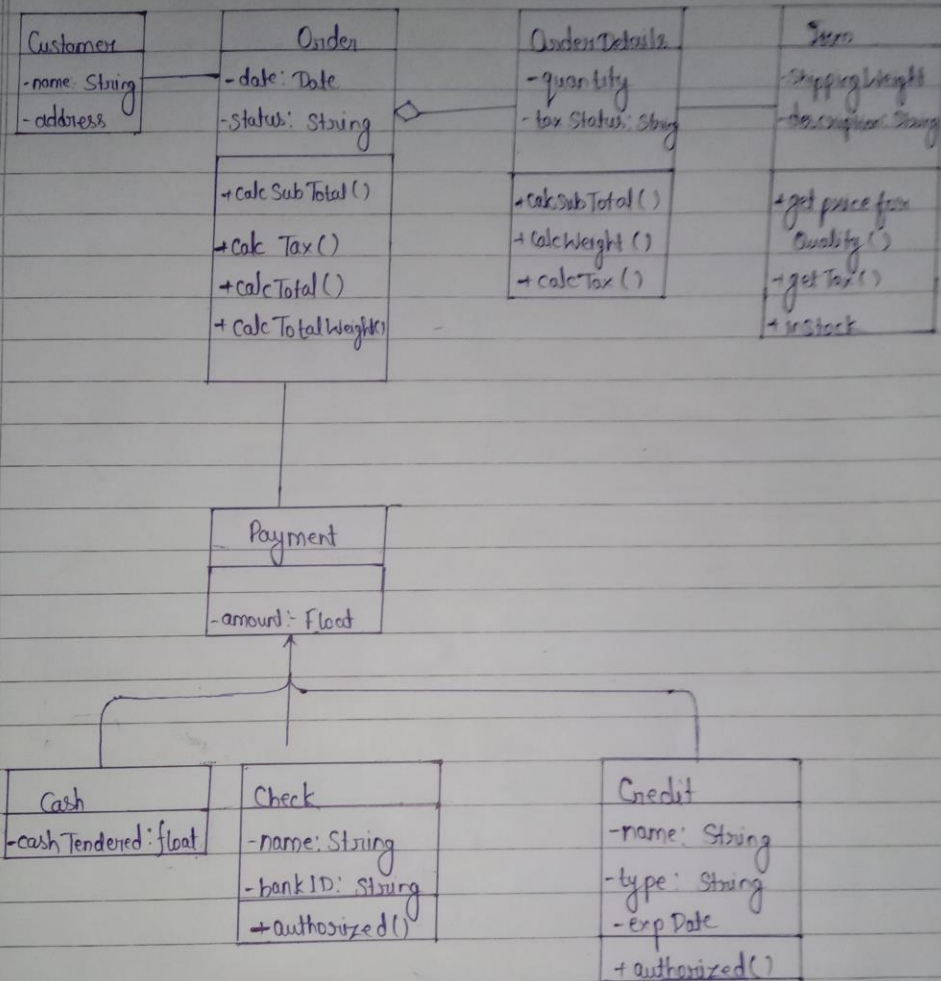 Customer
-name: String
-address
Order
-date: Date
-status: String
+calcSubTotal()
+calc Tax()
+calcTotal()
+calcTotalWeight()
OrderDetails
-quantity
-tax Status: String
+calcSubTotal()
+calcWeight()
+calcTax()
Item
-shippingWeight
-description: String
+get price for
Quality()
+getTax()
+inStock
Payment
-amount:- Float
Cash
-cashTendered: float
Check
-name: String
-bankID: String
+authorized()
Credit
-name: String
-type: String
-expDate
+authorized()